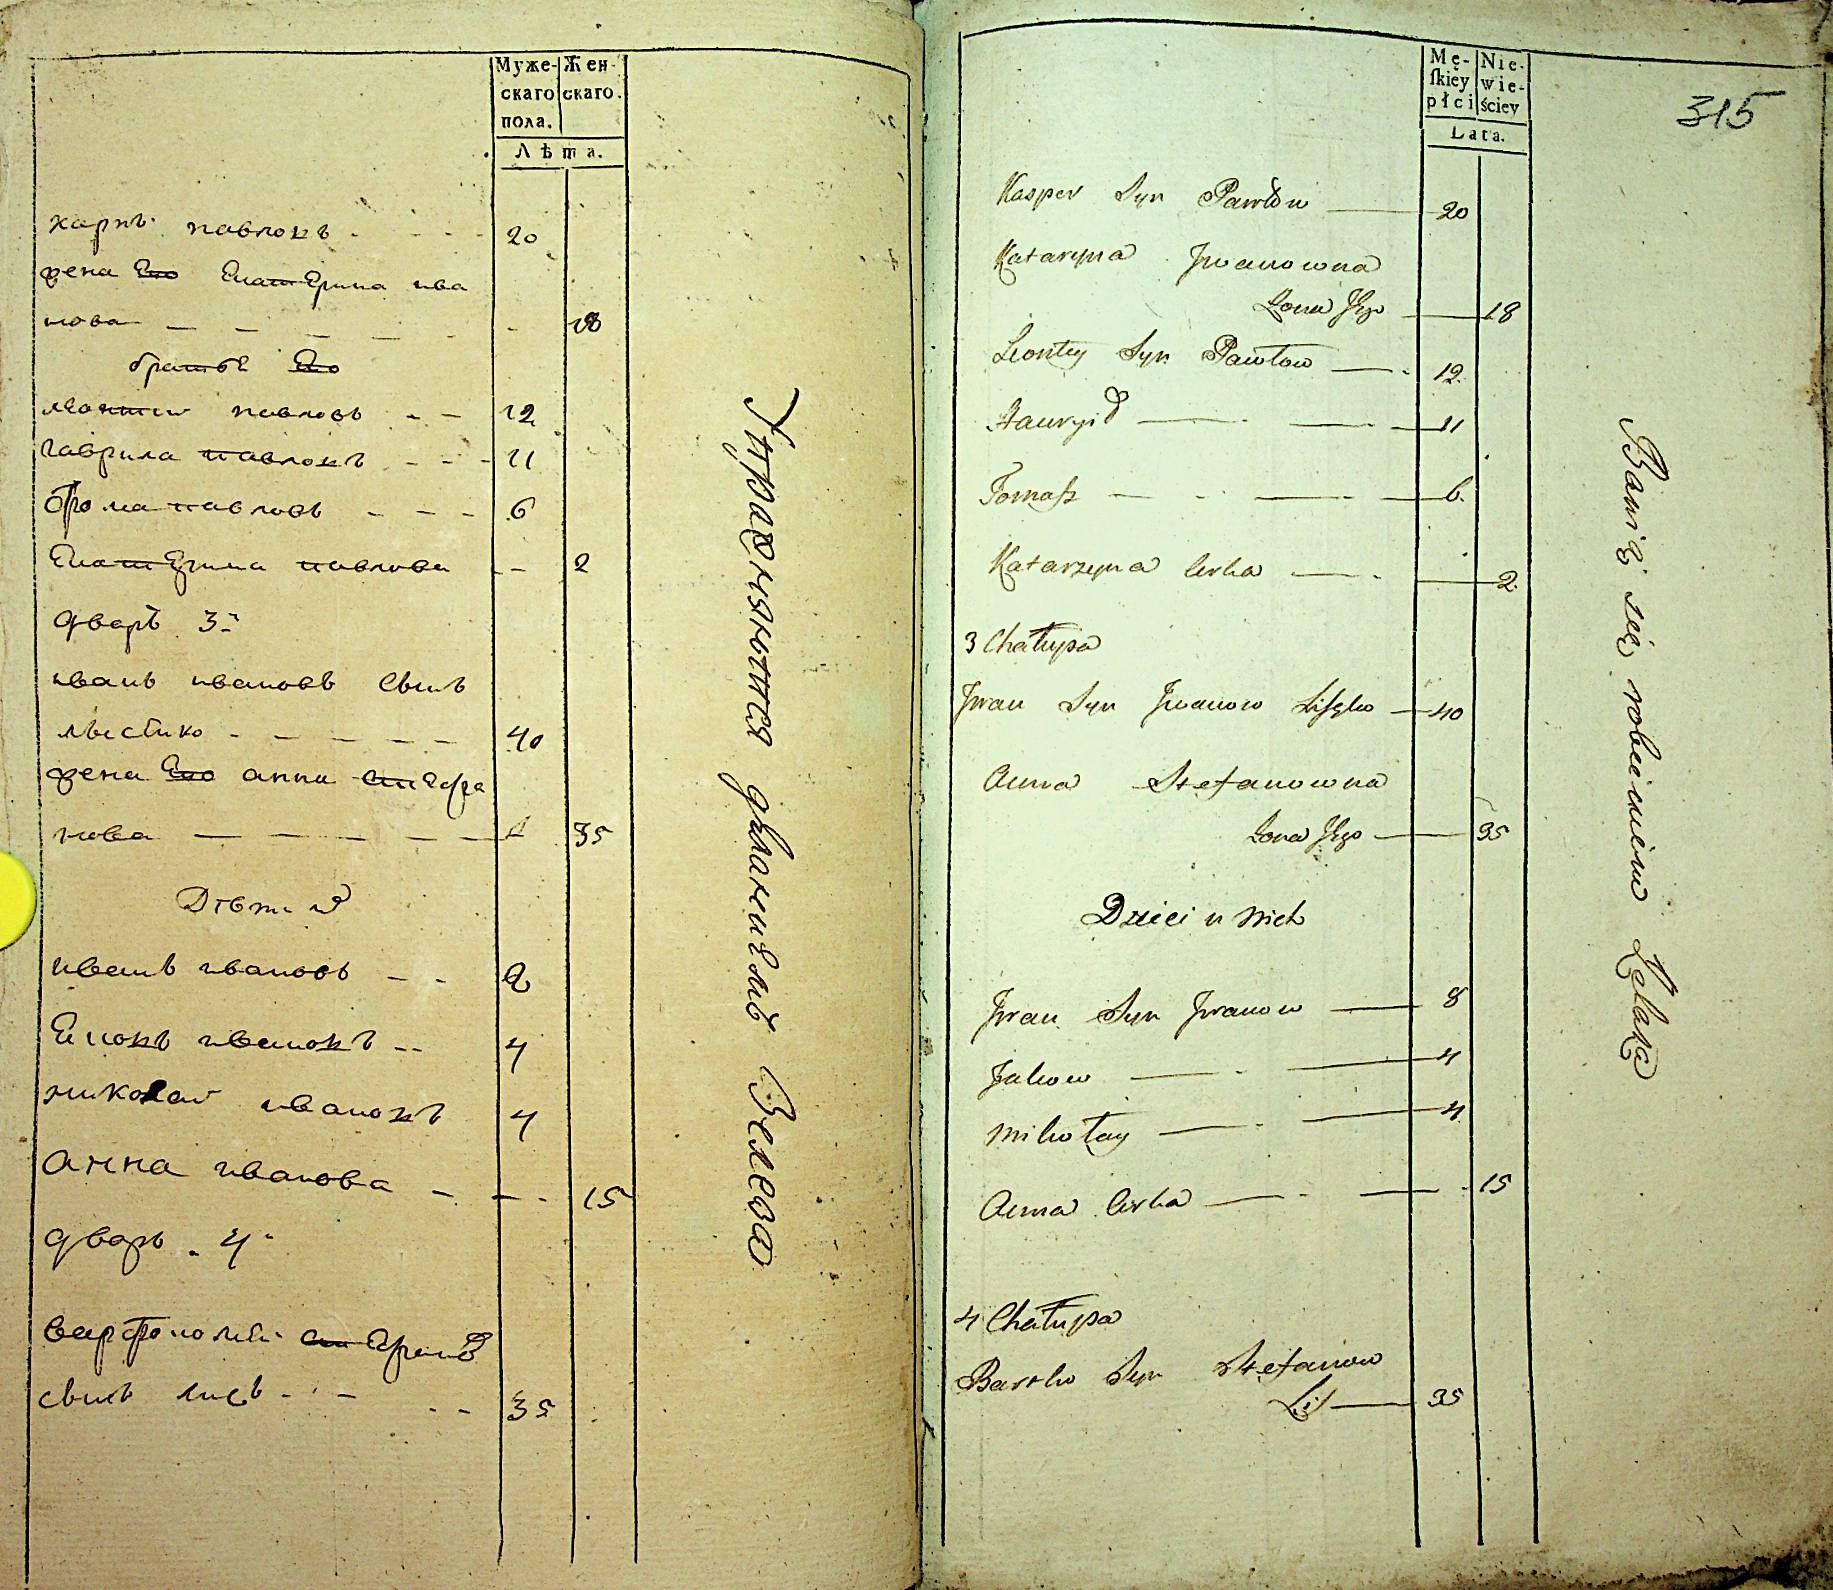 Муже-
скаго
пола.
Жен-
скаго.
Лѣта.
карпъ павловъ 20
жена Его Екатерина ива
нова 18
братья Его
леонтий павловъ 12
гаврила павловъ 11
фома павловъ 6
Екатерина павлова 2
дворъ 3й
иванъ ивановъ сынъ
40
жена Его анна степа
нова 35
Дѣти
иванъ ивановъ 8
ивановъ 4
николай ивановъ 4
анна иванова 15
дворъ 4
варфоломей степановъ
сынъ лисъ 35
Упражняются
Mę-
skiey
płci
Nie-
wie-
ściey
Lata.
315
Kasper Syn Pawłow 20
Kataryna Jwanowna
Żona Jego 18
Leontey Syn Pawłow 12
11
Tomasz 6
Katarzyna Corka 2
3 Chałupa
Jwan Syn Jwanow 40
Anna Stefanowna
Żona Jego 35
Dzieci u Nich
Jwan Syn Jwanow 8
Jakow 4
Mikołay 4
Anna Corka 15
4 Chałupa
Bartko Syn Stefanow
Lis 35
Bawią się robieniem Żelaza